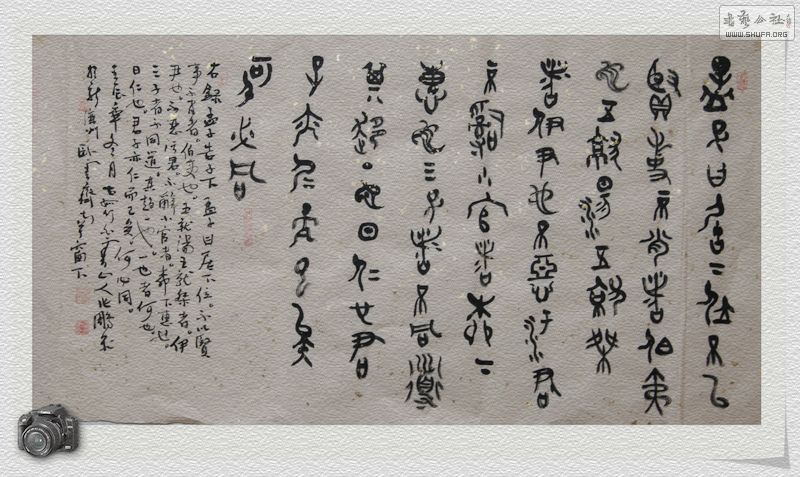 書藝公社
WWW.SHUFA.ORG
孟子曰居下位不以
賢事不肖者伯夷
也五就湯五就桀
者伊尹也不惡汙君
不辭小官者柳下
惠也三子者不同道
其趨一也曰仁也君
子亦仁而已矣
何必同
右錄孟子告子下孟子曰居下位不以賢
事不肖者伯夷也五就湯五就桀者伊
尹也不惡汙君不辭小官者柳下惠也
三子者不同道其趨一也一也者何也
曰仁也君子亦仁而已矣何必同
壬辰年冬月
州臥雲齋南窗下